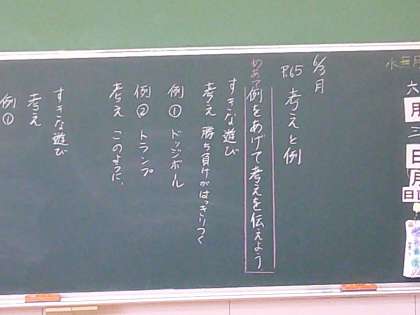 水無月
六
月
日
月
日直
6/3月
P.65 考えと例
めあて
例をあげて考えを伝えよう
すきな遊び
考え 勝ち負けがはっきりつく
例① ドッジボール
例② トランプ
考え このように、
すきな遊び
考え
例①